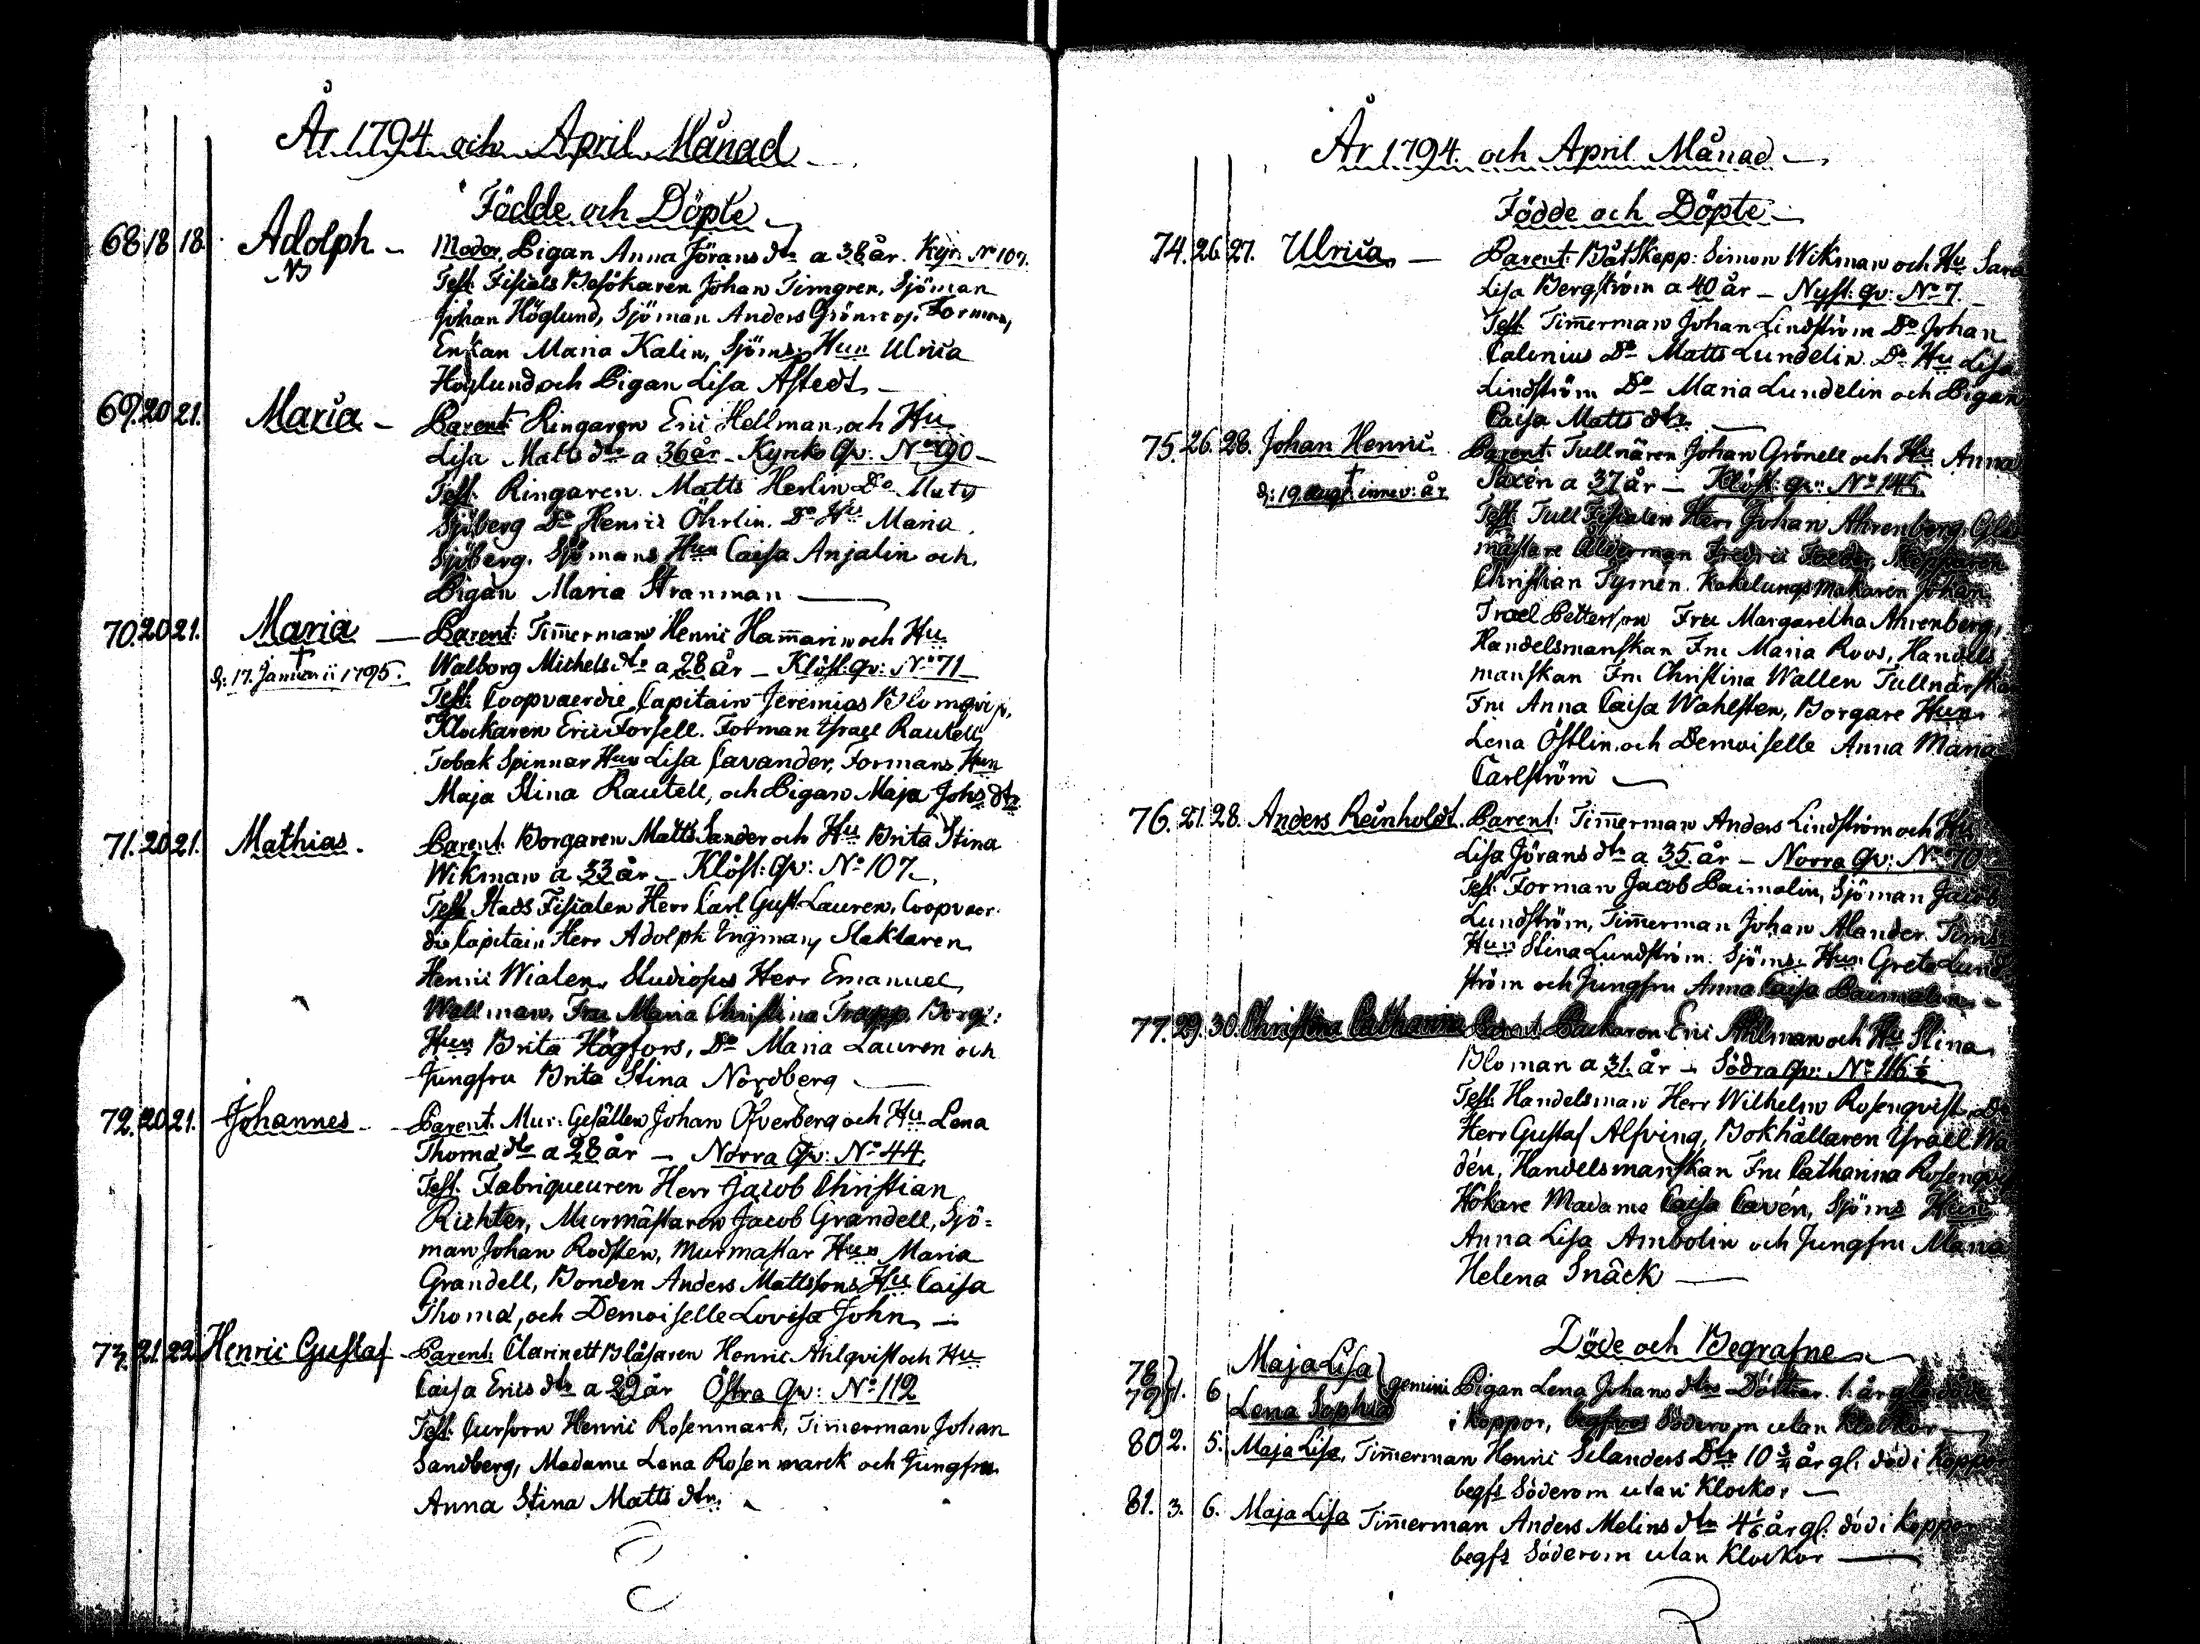 År 1794 och April Månad
Födde och Döpte
68 18 18. Adolph – Moder, Pigan Anna Jörans dtr a 38 år. Kyr. No 107.
NB Test: Fiskals Besökaren Johan Timgren, Sjöman
Johan Höglund, Sjöman Anders Forman,
Enkan Maria Kalin, Sjöms Hun Ulrica
Höglund och Pigan Lisa Åstedt –
69. 20 21. Maria – Parent: Ringaren Eric Hellman och Hu
Lisa Matts dtr a 36 år – Kyrcko Qv: No 90 –
Test: Ringaren Matts Herlin Do Mats
Sjöberg Do Henric Öhrlin. Do Hu Maria
Sjöberg. Sjömans Hun Caisa Anjalin och
Pigan Maria Stranman –
70. 20 21. Maria – Parent: Tim̅erman Henric Ham̅arin och Hu
† d: 17. Januarii 1795. Walborg Michels dtr a 28 år – Klöst. qv: No 71 –
Test: Coopvaerdie Capitain Jeremias Blomqvist,
Klockaren Eric Forsell. Forman Israel Rautell
Tobak Spinnar Hun Lisa Cavander, Formans Hun
Maja Stina Rautell, och Pigan Maja Johs dtr
71. 20 21. Mathias. Parent: Borgaren Matts Sander och Hu Brita Stina
Wikman a 33 år – Klöst: qv: No 107 –
Test: Stads Fiscalen Herr Carl Gust Lauren, Coopvaer-
die Capitain Herr Adolph Engman, Slaktaren
Henric Wialen, Studiosus Herr Emanuel
Wallman, Fru Maria Christina Trapp, Borg:
Hun Brita Högfors, Do Maria Lauren och
Jungfru Brita Stina Nordberg –
72. 20 21. Johannes – Parent. Mur: Gesällen Johan Öfverberg och Hu Lena
Thoma dtr a 28 år – Norra Qv: No 44.
Test: Fabriqueuren Herr Jacob Christian
Richter, Murmästaren Jacob Grandell, Sjö=
man Johan Rodsten, Murmästar Hun Maria
Grandell, Bonden Anders Mattssons Hu Caisa
Thoma, och Demoiselle Lovisa John –
73. 21 22 Henric Gustaf – Parent: Clarinett Blåsaren Henric Ahlqvist och Hu
Caisa Erics dtr a 29 år Östra Qv: No 112
Test: Cursorn Henric Rosenmark, Timerman Johan
Sandberg, Madame Lena Rosenmarck och Jungfru
Anna Stina Matts dtr.
År 1794. och April Månad –
Födde och Döpte –
74. 26 27. Ulrica – Parent: Båtskepp: Simon Wikman och Hu Sara
Lisa Bergström a 40 år – Nyst: qv: No 7. –
Test: Tim̅erman Johan Lindström Do Johan
Calenius Do Matts Lundelin. Do Hu Lisa
Lindström Do Maria Lundelin och Pigan
Caisa Matts dtr –
75. 26. 28. Johan Henric. Parent: Tullnären Johan Grönell och Hu Anna
† d: 19. augt innev: år Saxén a 37 år – Klöst: qv: No 145
Test: Tull Fiscalen Herr Johan Ahrenberg, Glas
mästare Ålderman Fredric Skepparen
Christian Tymén. Kakelungsmakaren Johan
Petterson Fru Margaretha Ahrenberg,
Handelsmanskan Fru Maria Roos, Handels
manskan Fru Christina Wallen Tullnärskan
Fru Anna Caisa Wahlsten, Borgare Hun
Lena Östlin och Demoiselle Anna Maria
Carlström –
76. 21. 28. Anders Reinholdt. Parent: Tim̅erman Anders Lindström och Hu
Lisa Jörans dtr a 35 år – Norra Qv: No 70
Test: Forman Jacob Paimalin, Sjöman Jacob
Lundström, Tim̅erman Johan Alander. Tim̅s
Hun Stina Lundström. Sjöms: Hun Greta Lund
ström och Jungfru Anna Caisa Paimalin –
77. 29. 30. Christina Catharina Parent Backaren Eric Ahlman och Hu Stina
Bloman a 31 år – Södra Qv: No 116 ½
Test: Handelsman Herr Wilhelm Rosenqvist, Do
Herr Gustaf Alfving, Bokhållaren Israel Wa
dén, Handelsmanskan Fru Catharina Rosenqvi
Hökare Madame Caisa Cavén, Sjöms Hun
Anna Lisa Ambolin och Jungfru Maria
Helena Snäck –
Döde och Begrafne –
78 79 } 1. 6 Maja Lisa Lena Sophia } gemini Pigan Lena Johans dtrs Döttrar. 1. år gla döde
i Koppor, begfvos Söderom utan Klockor –
80 2. 5. Maja Lisa, Tim̅erman Henric Selanders Dtr 10 ¾ år gl. död i Koppor
begfs Söderom utan Klockor –
81. 3. 6. Maja Lisa Tim̅erman Anders Melins dtr 4 1/6 år gl. död i Koppor
begfs Söderom utan Klockor –